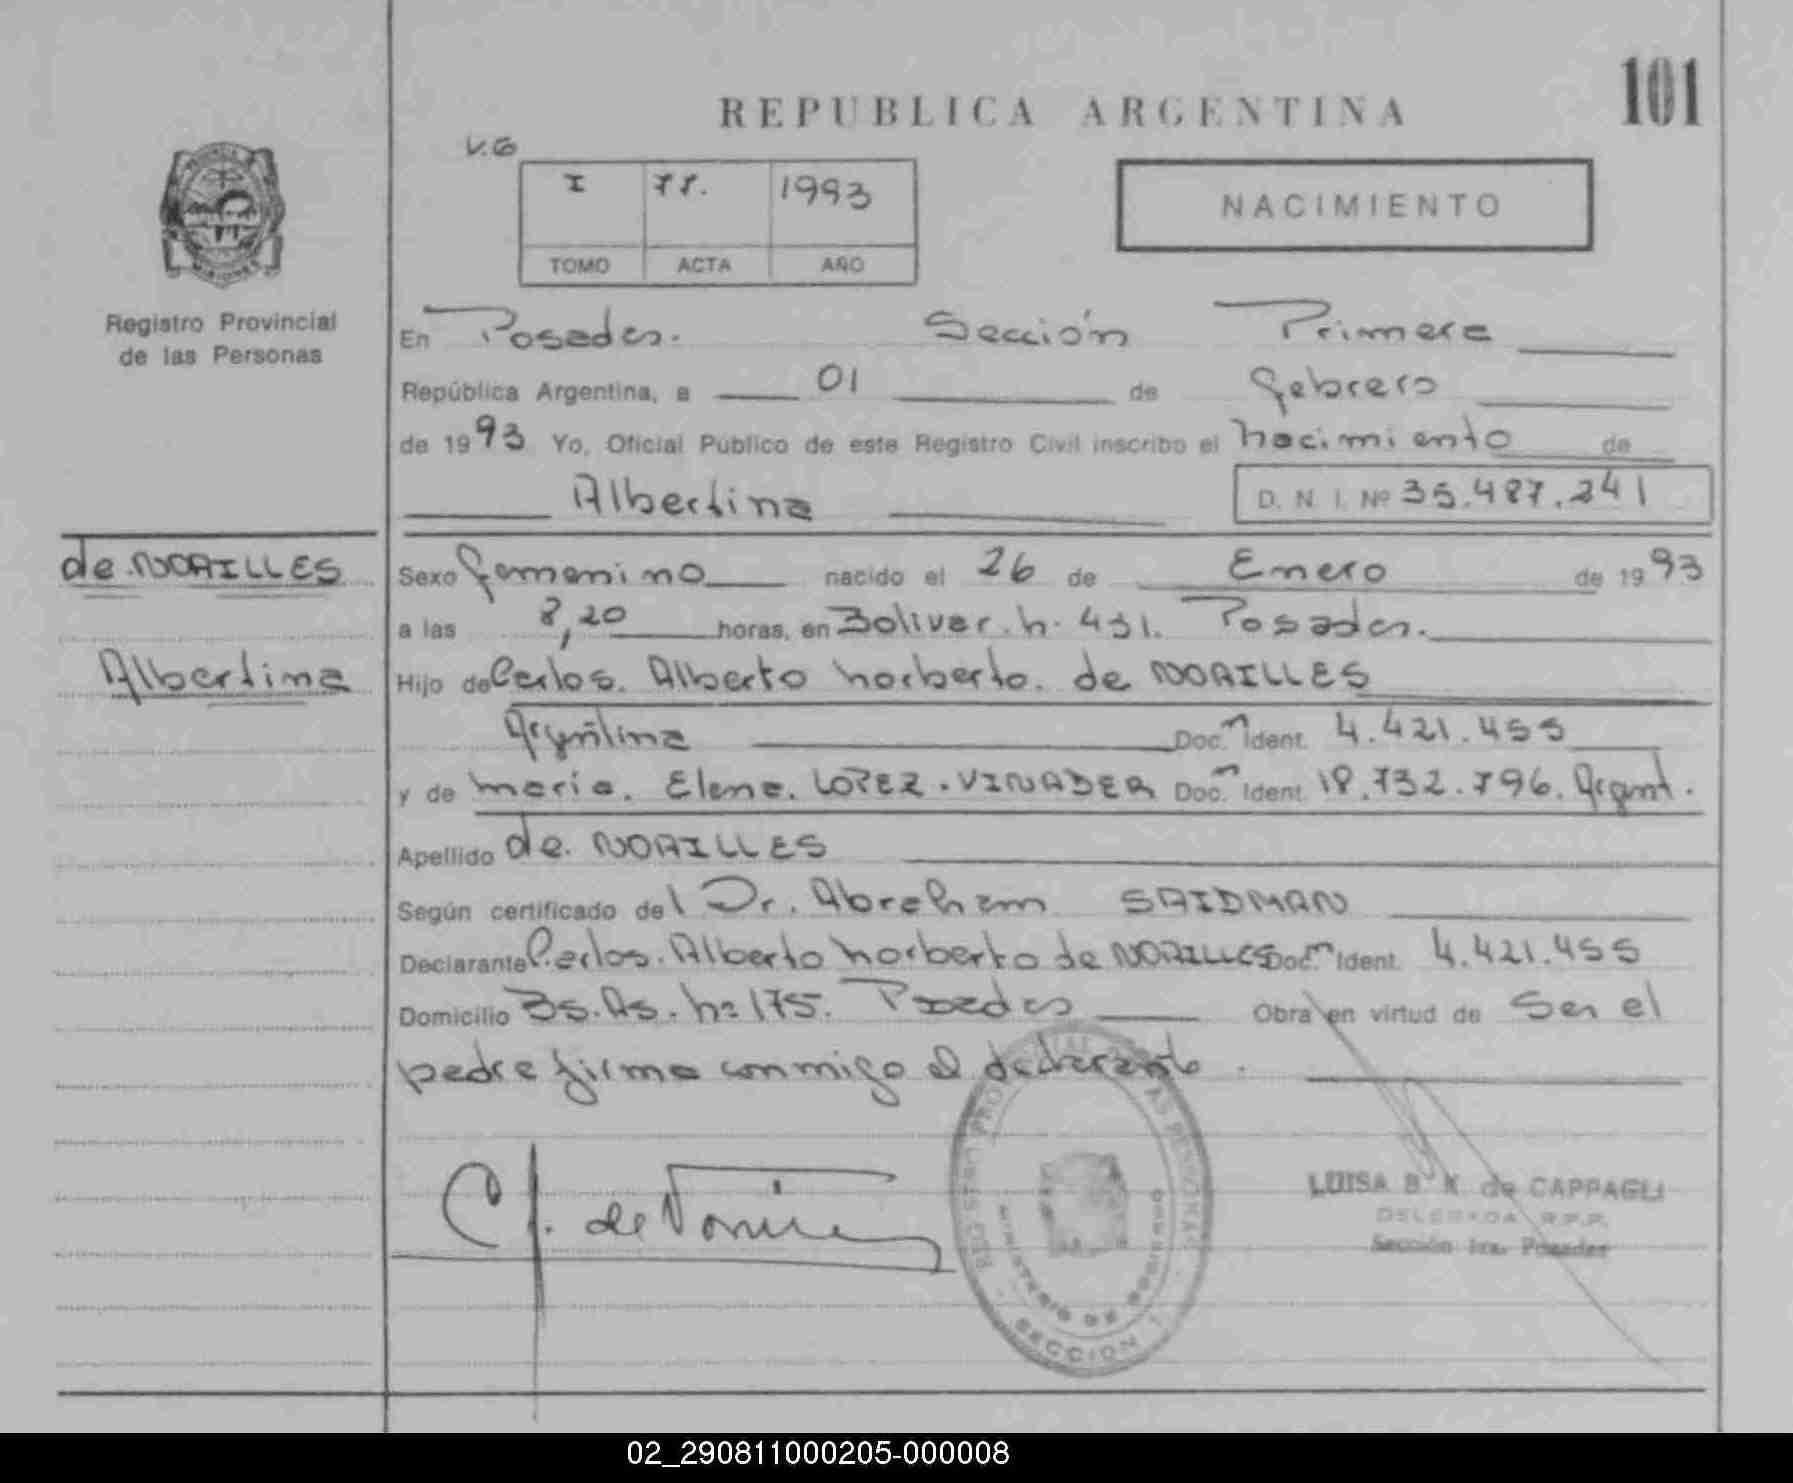 101
REPUBLICA ARGENTINA
V.G
I 77. 1993
TOMO ACTA AÑO
NACIMIENTO
Registro Provincial
de las Personas
En Posadas. Sección Primera
República Argentina, a 01 de febrero
de 1993 Yo, Oficial Público de este Registro Civil inscribo el nacimiento de
Albertina D. N. I. Nº 35.487.241
de NOAILLES
Albertina
Sexo femenino nacido el 26 de Enero de 1993
a las 8,20 horas, en Bolivar. n. 431. Posadas.
Hijo de Carlos. Alberto Norberto. de NOAILLES
Argentina Doc. Ident. 4.421.455
y de Maria. Elena. LOPEZ. VINADER Doc. Ident. 18.732.796. Argent.
Apellido de. NOAILLES
Según certificado del Dr. Abraham SAIDMAN
Declarante Carlos. Alberto Norberto de NOAILLES Doc. Ident. 4.421.455
Domicilio Bs. As. nº 175. Posadas Obra en virtud de Ser el
padre firma conmigo el declarante.
MINISTERIO DE GOBIERNO
SECCION 1
LUISA B K de CAPPAGLI
DELEGADA R.P.P.
Sección 1ra. Posadas
02_290811000205-000008